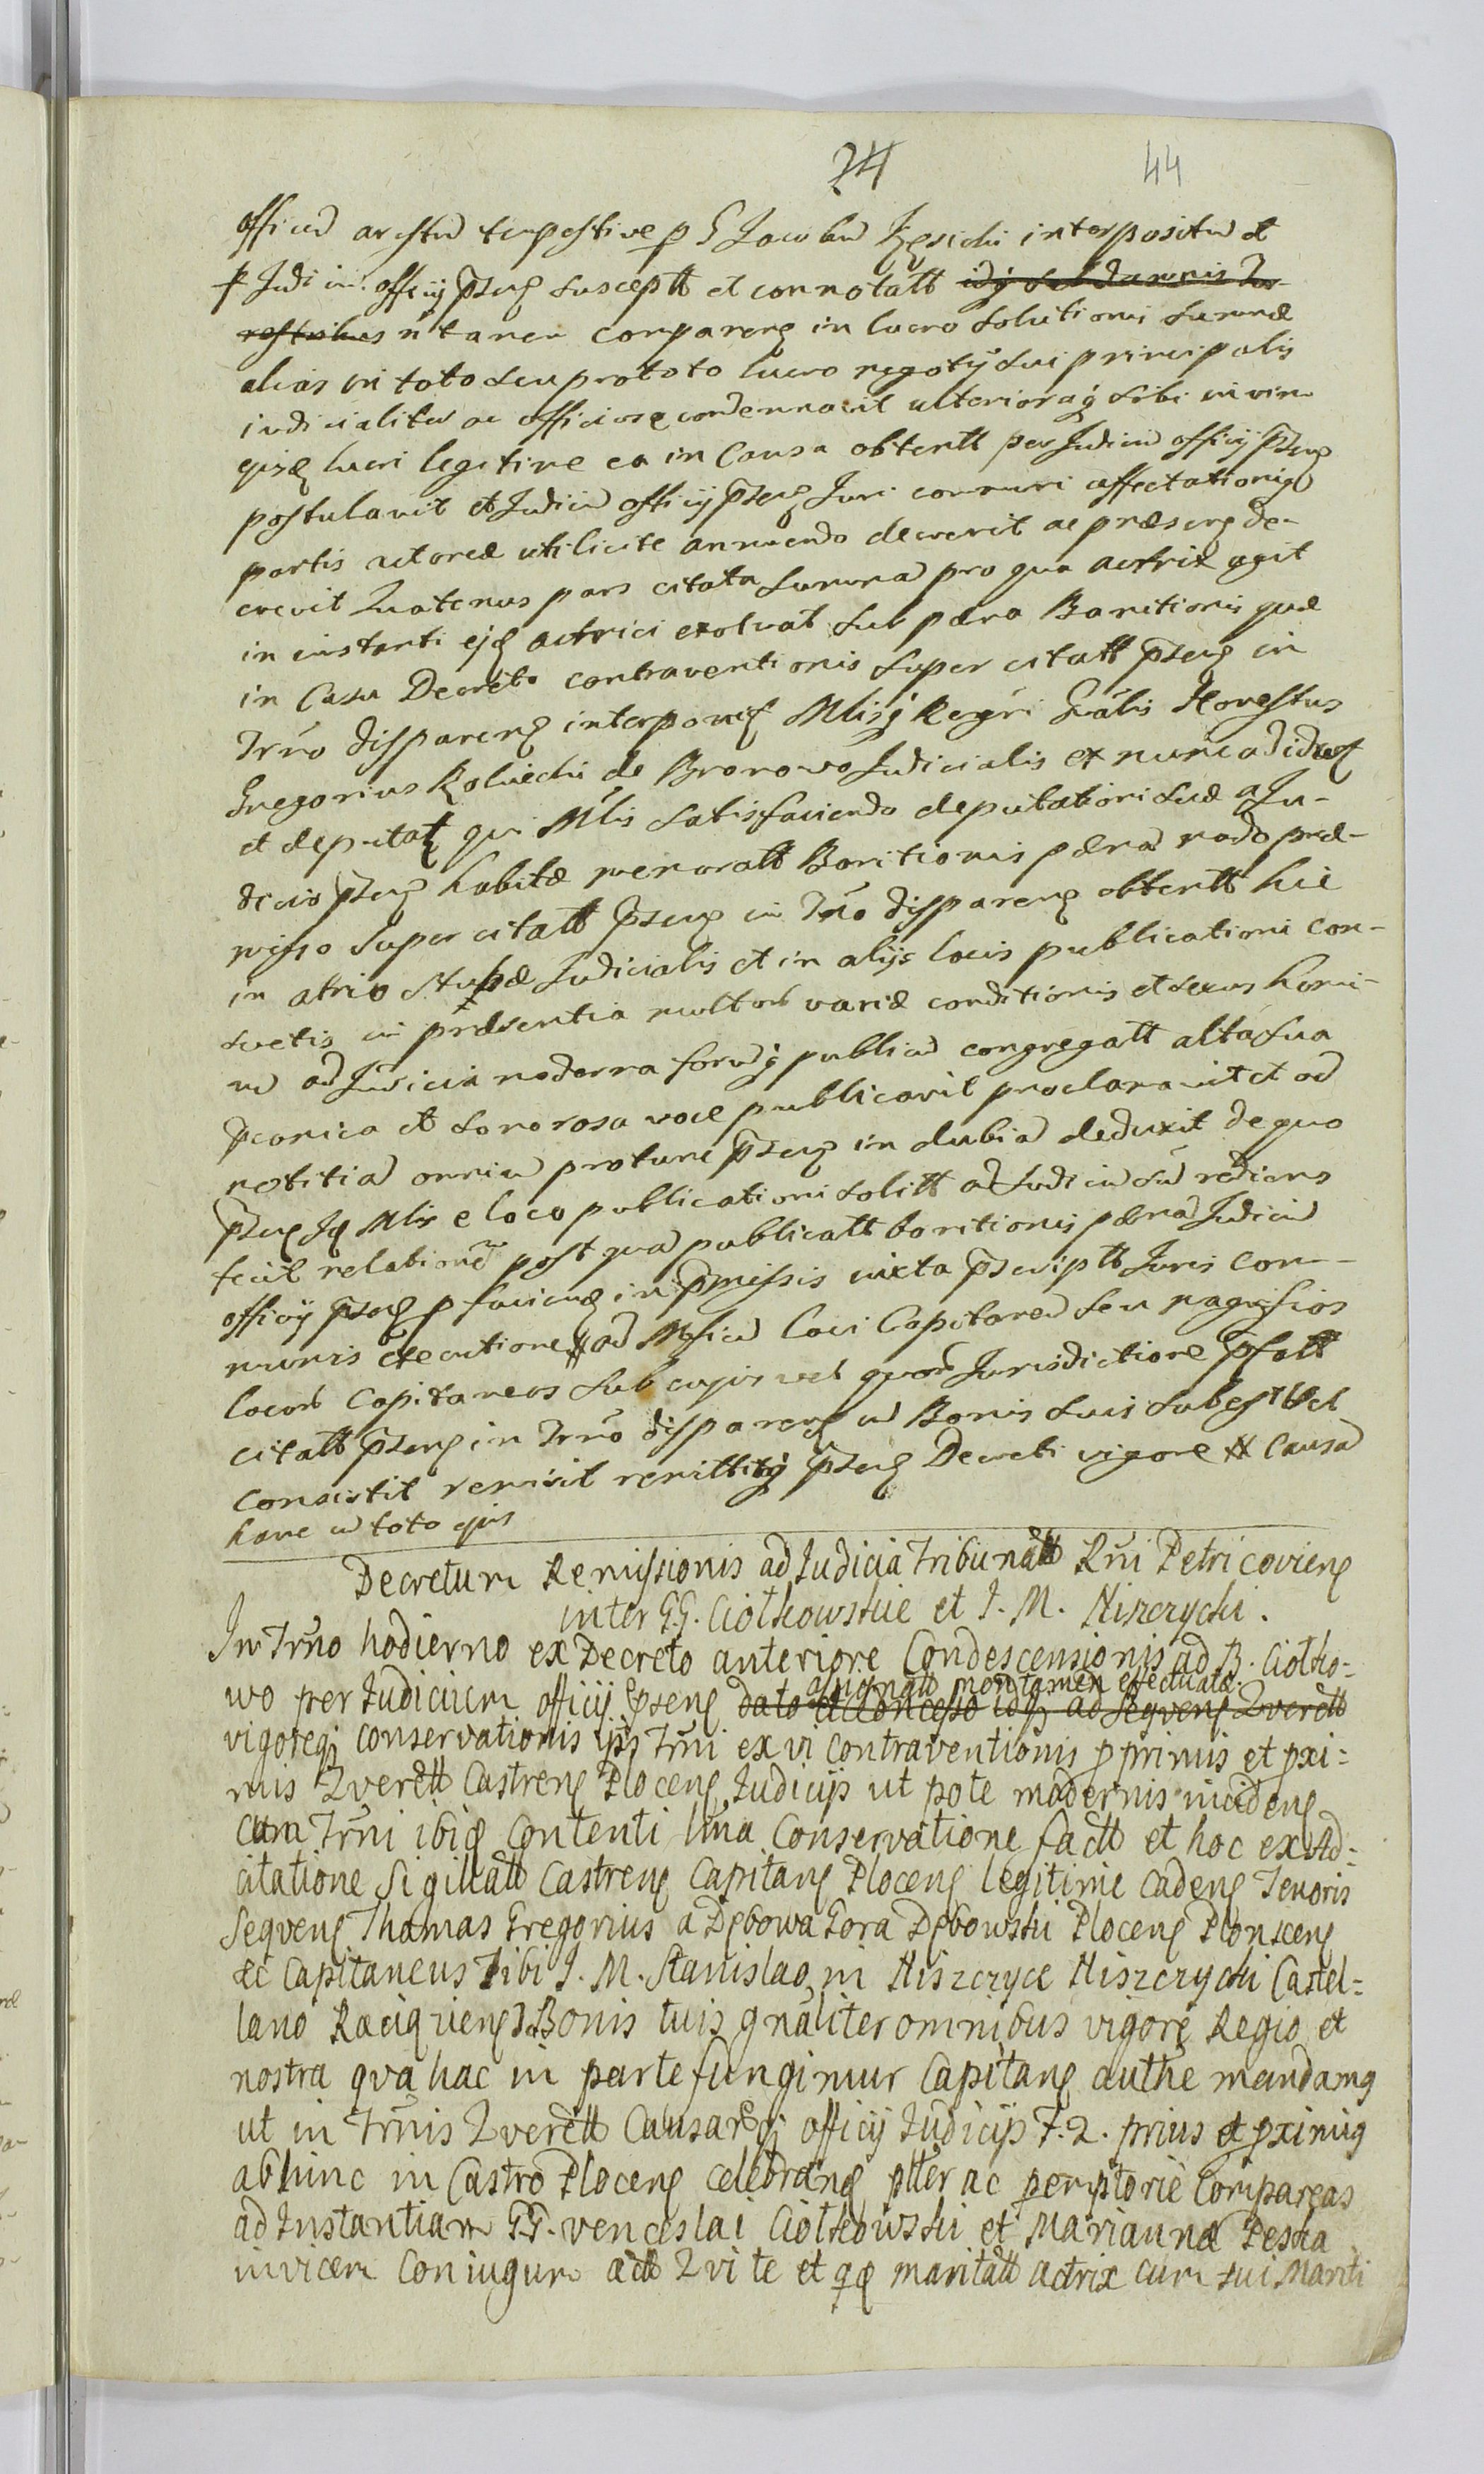 74 44
officiu arestu tempestive p G Jacobu interpositu et
p Judiciu officij pseng suscept et connotatt
n tamen comparens in lucro solutionis summæ
alias in toto seu pro toto lucro negotij sui principalis
judicialiter ac officiose condemnavit ulterioraq sibi in vim
lucri legitime ea in Causa obtentt per Judiciu officij pseng
postulavit et Judiciu officij pseng Juri communi affectationiq
partis actoreæ utilicite annuendo decrevit ac præseng de-
crevit Quatenus pars citata summa pro qua actrix agit
in instanti ejq actrici exolvat sub pæna Banitionis quæ
in Casu Decreto contraventionis super citatt pseng in
Trno dispareng interponet Mlisq Regni Gnalis Honestus
Gregorius de Bronowo Judicialis ex nunc ad id est
et deputat qui Mlis satisfaciendo deputationi suæ a Ju-
dicio pseng habitæ memoratt Banitionis pæna modo præ-
misso super citatt pseng in Trno dispareng obtentt hic
in atrio stubæ Judicialis et in alijs locis publicationi con-
suetis in præsentia multor variæ conditionis et sexus homi-
nu ad Judicia moderna foruq publicu congregatt alta sua
et sonorosa voce publicavit proclamavit et ad
notitia omniu protunc pseng in dubia deduxit de quo
pseng Mlis e loco publicationi solitt ad Judiciu su rediens
fecit relatione post qua publicatt banitionis pæna Judiciu
officij pseng p faciend in pmissis iuxta pscriptt Juris com-
munis executione ad Mficu loci Capitaneu seu magnificos
locor Capitaneos sub cujus vel quor Jurisdictione pfatt
citatt pseng in Trno dispareng cu Bonis suis subest vel
consistit remisit remittitq pseng Decreti vigore Causa
hanc in toto ejus
Decretum Remissionis ad Judicia Tribunatt Rni Petricovieng
inter G.G. Ciołkowskie et J. M. Niszczycki.
In Trno hodierno ex Decreto anteriore Condescensionis ad B. Ciołko-
assignatt non tamen effectuatæ
wo per Judicium officij pseng dato et concesso idq ad seqveng Qverett
vigoreq conservationis ips Trni ex vi contraventionis p primis et pxi-
mis Qverett Castreng Ploceng Judicijs ut pote modernis incideng
cum Trni ibiq contenti lma Conservatione factt et hoc ex Ad-
citatione Sigillatt Castreng Capitang Ploceng legitime cadeng Tenoris
Seqveng Thomas Gregorius a Dębowa Gora Dębowski Ploceng Plonsceng
&c Capitaneus Tibi J. M. Stanislao in Niszczyce Niszczycki Castel-
lano Raciqvieng de Bonis tuis gnaliter omnibus vigore Regio et
nostra qva hac in parte fungimur Capitang authe mandamq
ut in Trnis Qverett Causarq officij Judicijs F. 2. prius et pximiq
abhinc in Castro Ploceng celebrang plter ac perptorie Compareas
ad Instantiam G.G. venceslai Ciołkowski et Mariannæ Peska
invicem Coniugum actt Qvi te et qq maritatt actrix cum sui Mariti